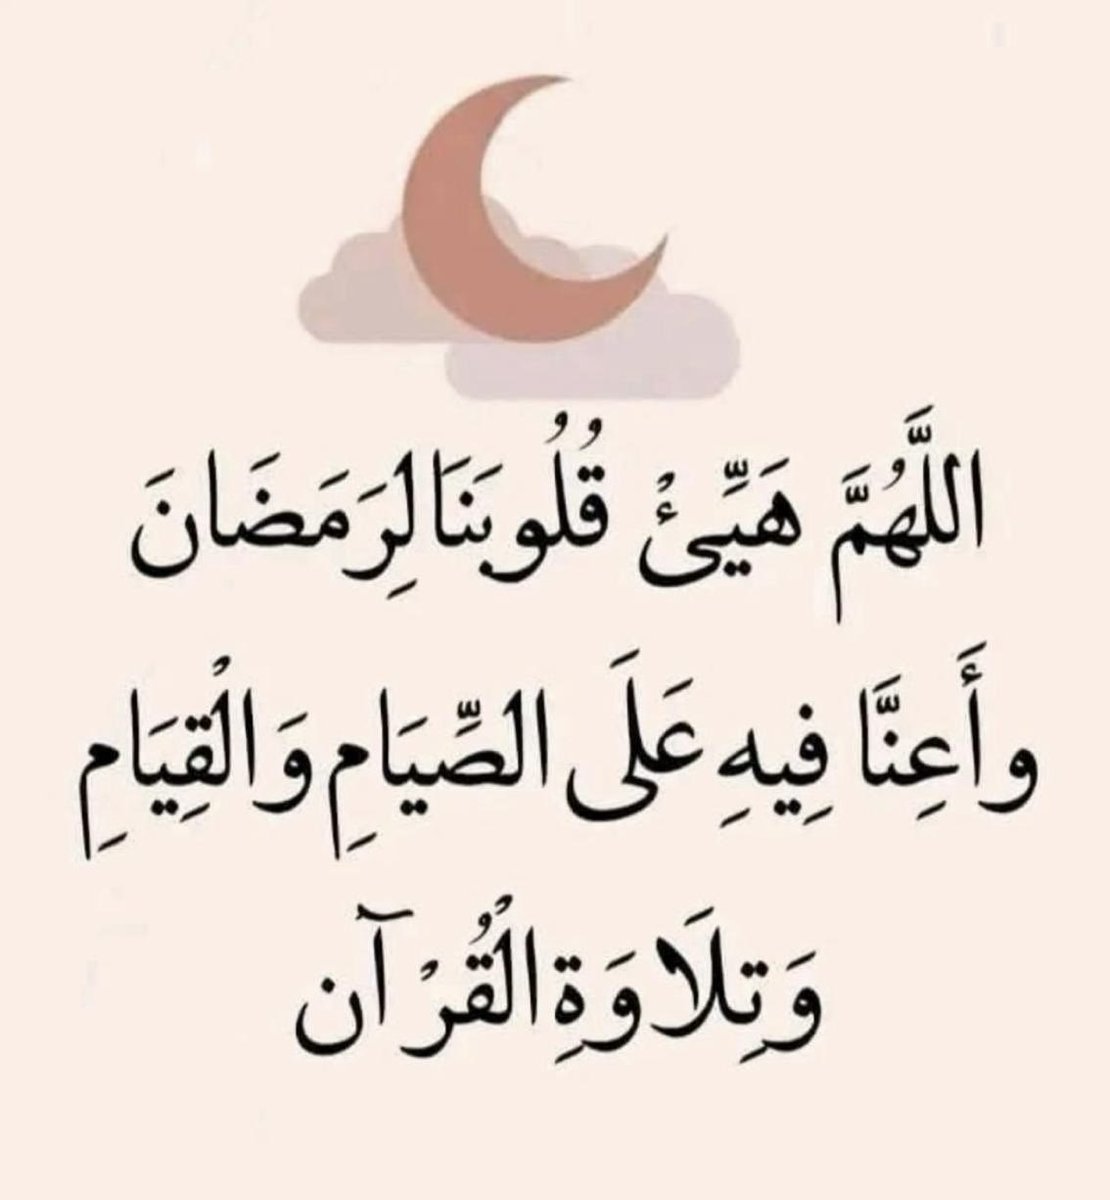 اللَّهُمَّ هَيِّئْ قُلُوبَنَا لِرَمَضَانَ
وأَعِنَّا فِيهِ عَلَى الصِّيَامِ وَالْقِيَامِ
وَتِلَاوَةِ الْقُرْآن